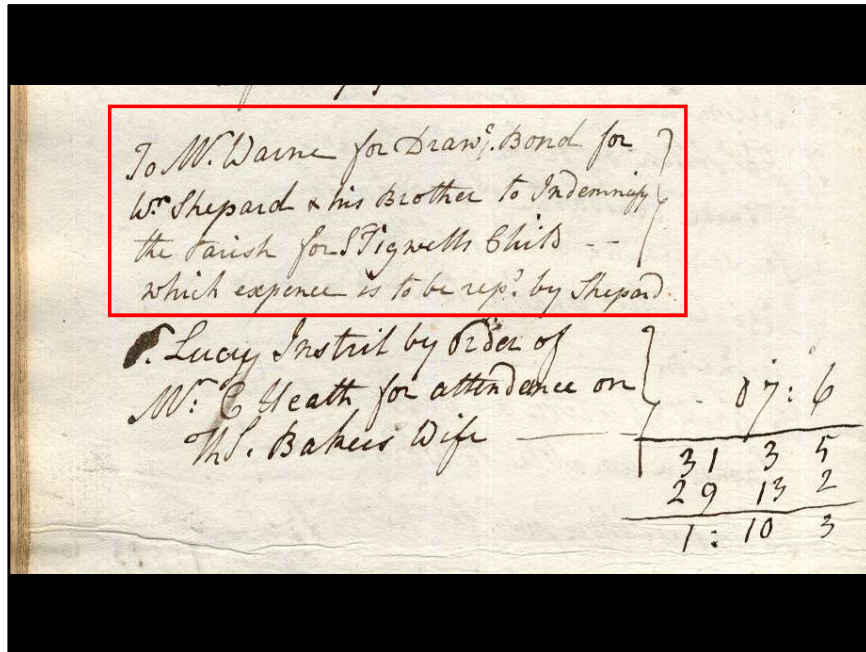 To Mr. Warne for Drawg. Bond for
Wm Shepard & his Brother to Indemnify
the Parish for S Tigwells Child - -
which expence is to be repd. by Shepard
Lucy Instril by Order of
Mr. C Heath for attendance on
Ths. Bakers Wife - 07: 6
31 3 5
29 13 2
1: 10 3